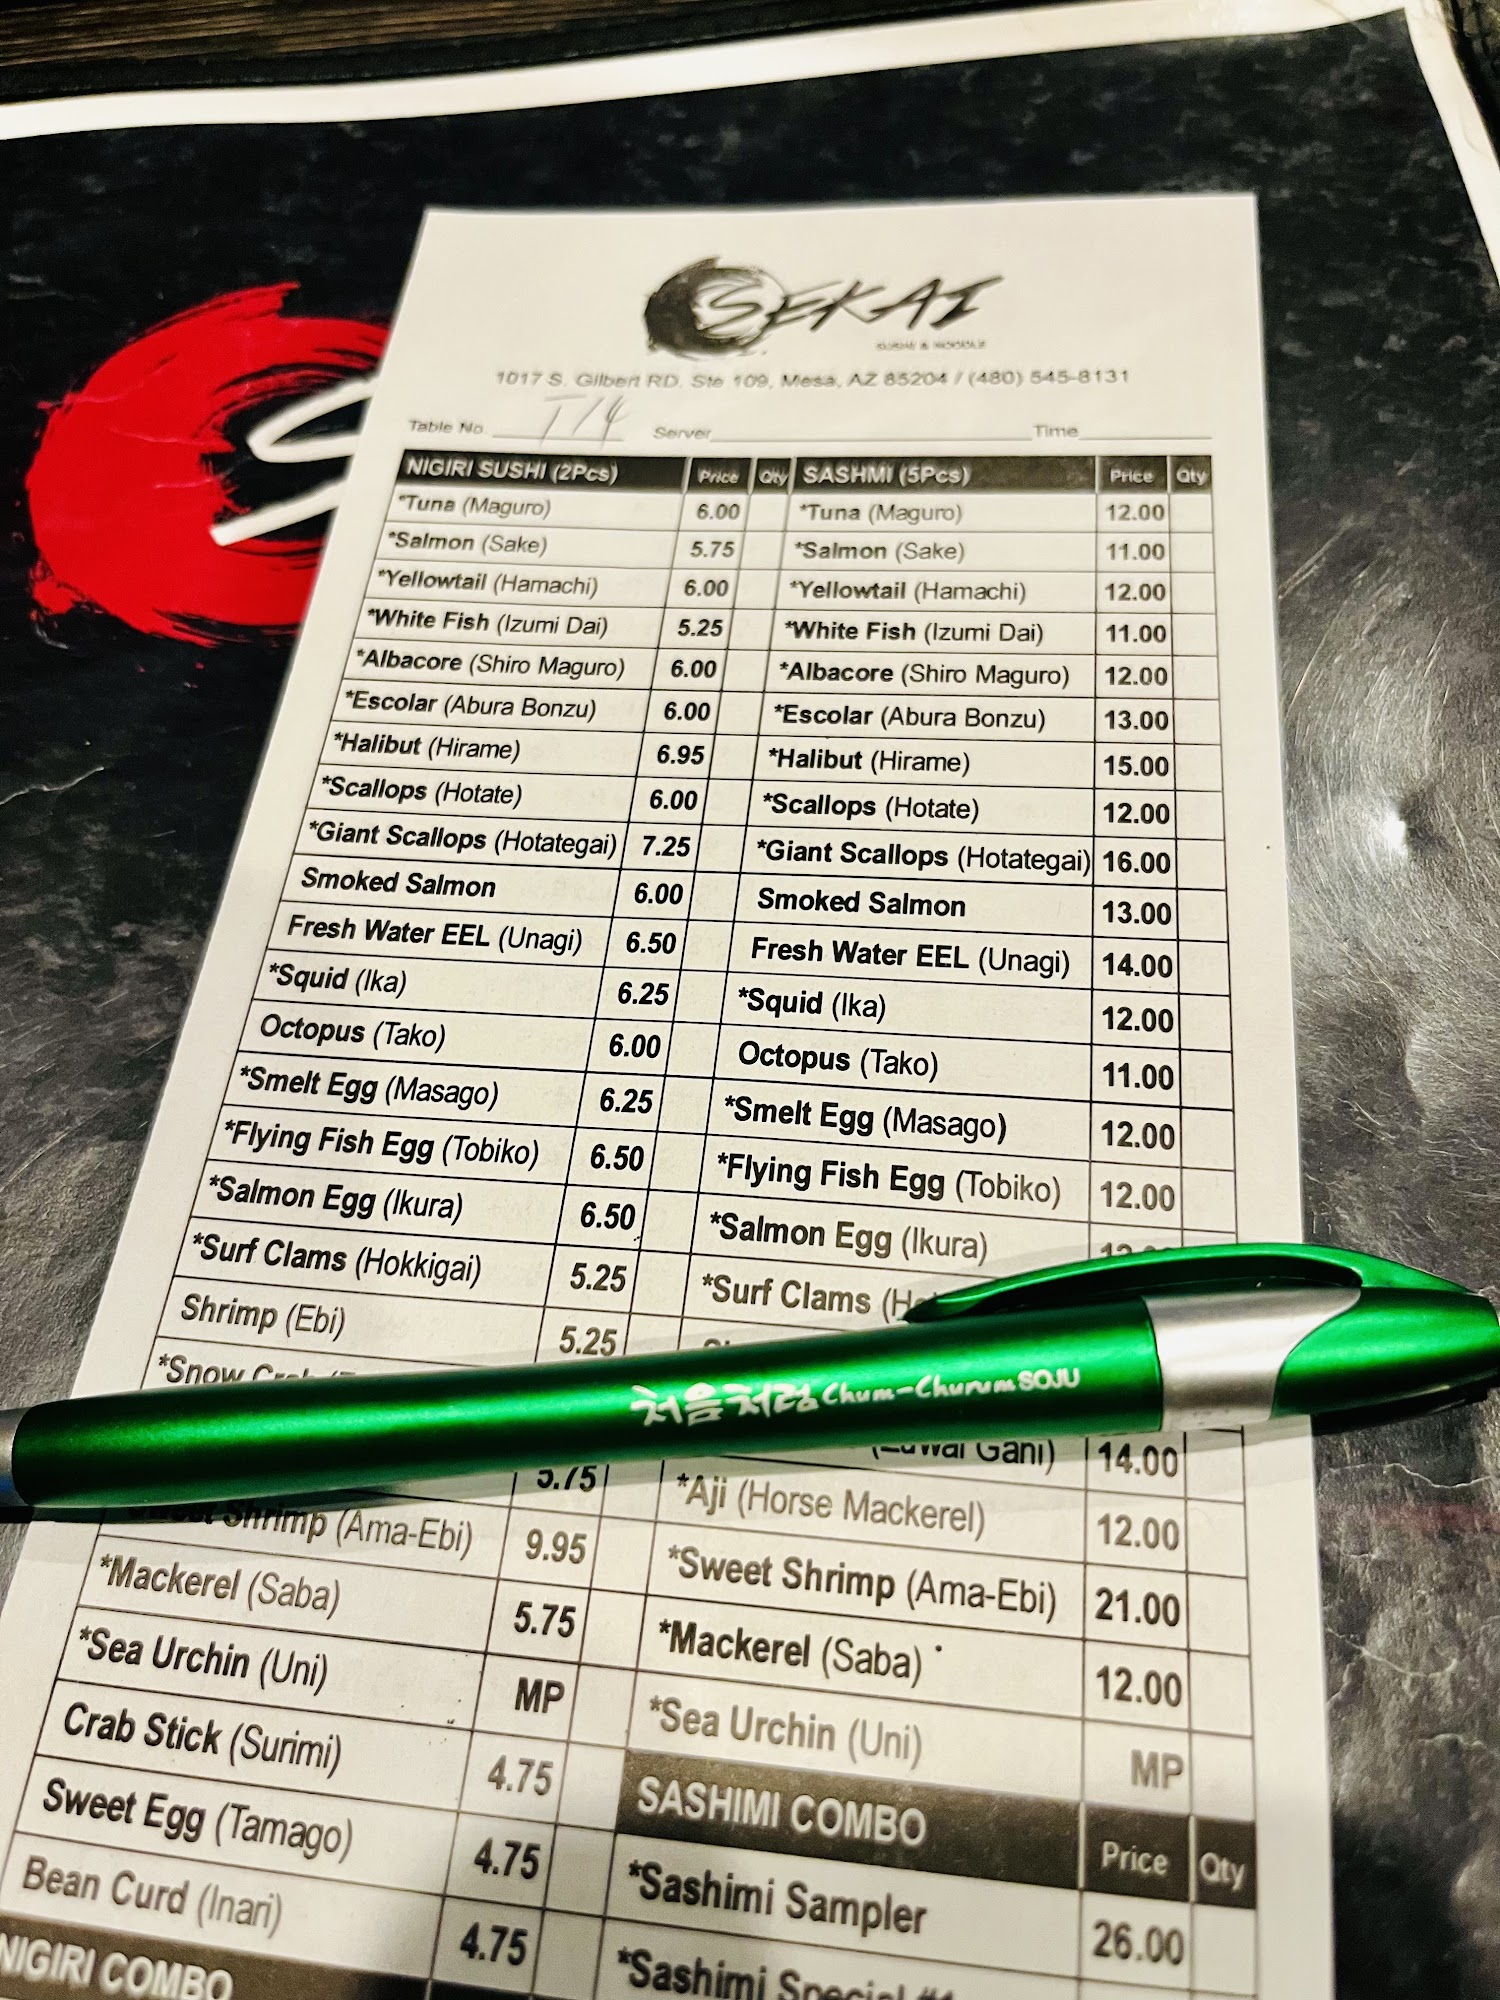 SEKAI
SUSHI & NOODLE
1017 S. Gilbert RD. Ste 109, Mesa, AZ 85204 / (480) 545-8131
Table No. T14 Server Time
NIGIRI SUSHI (2Pcs) Price Qty SASHMI (5Pcs) Price Qty
*Tuna (Maguro) 6.00 *Tuna (Maguro) 12.00
*Salmon (Sake) 5.75 *Salmon (Sake) 11.00
*Yellowtail (Hamachi) 6.00 *Yellowtail (Hamachi) 12.00
*White Fish (Izumi Dai) 5.25 *White Fish (Izumi Dai) 11.00
*Albacore (Shiro Maguro) 6.00 *Albacore (Shiro Maguro) 12.00
*Escolar (Abura Bonzu) 6.00 *Escolar (Abura Bonzu) 13.00
*Halibut (Hirame) 6.95 *Halibut (Hirame) 15.00
*Scallops (Hotate) 6.00 *Scallops (Hotate) 12.00
*Giant Scallops (Hotategai) 7.25 *Giant Scallops (Hotategai) 16.00
Smoked Salmon 6.00 Smoked Salmon 13.00
Fresh Water EEL (Unagi) 6.50 Fresh Water EEL (Unagi) 14.00
*Squid (Ika) 6.25 *Squid (Ika) 12.00
Octopus (Tako) 6.00 Octopus (Tako) 11.00
*Smelt Egg (Masago) 6.25 *Smelt Egg (Masago) 12.00
*Flying Fish Egg (Tobiko) 6.50 *Flying Fish Egg (Tobiko) 12.00
*Salmon Egg (Ikura) 6.50 *Salmon Egg (Ikura)
*Surf Clams (Hokkigai) 5.25 *Surf Clams
Shrimp (Ebi) 5.25
*Snow Crab
처음처럼 Chum-Churum SOJU
Gani) 14.00
5.75 *Aji (Horse Mackerel) 12.00
Shrimp (Ama-Ebi) 9.95 *Sweet Shrimp (Ama-Ebi) 21.00
*Mackerel (Saba) 5.75 *Mackerel (Saba) 12.00
*Sea Urchin (Uni) MP *Sea Urchin (Uni) MP
Crab Stick (Surimi) 4.75 SASHIMI COMBO Price Qty
Sweet Egg (Tamago) 4.75 *Sashimi Sampler 26.00
Bean Curd (Inari) 4.75 *Sashimi Special #1
NIGIRI COMBO